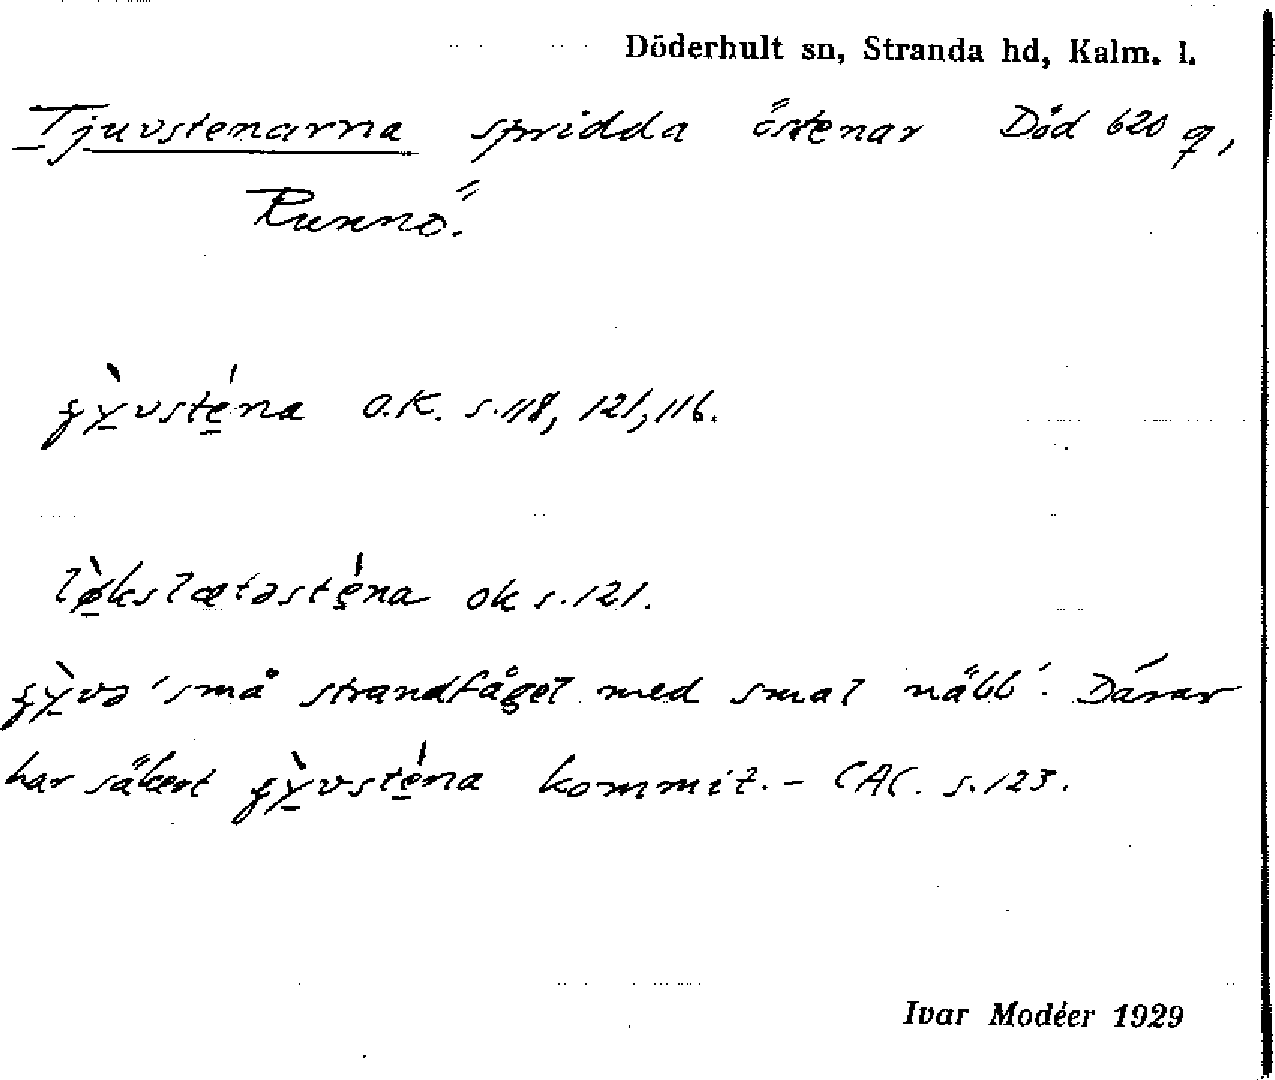 Döderhult sn, Stranda hd, Kalm. l.
Tjuvstenarna spridda östenar Död 620 q,
Runnö.
O.K. s. 118, 121, 116.
ok s. 121.
'små strandfågel med smal näbb'. Därav
har säkert kommit. - CAC. s. 123.
Ivar Modéer 1929